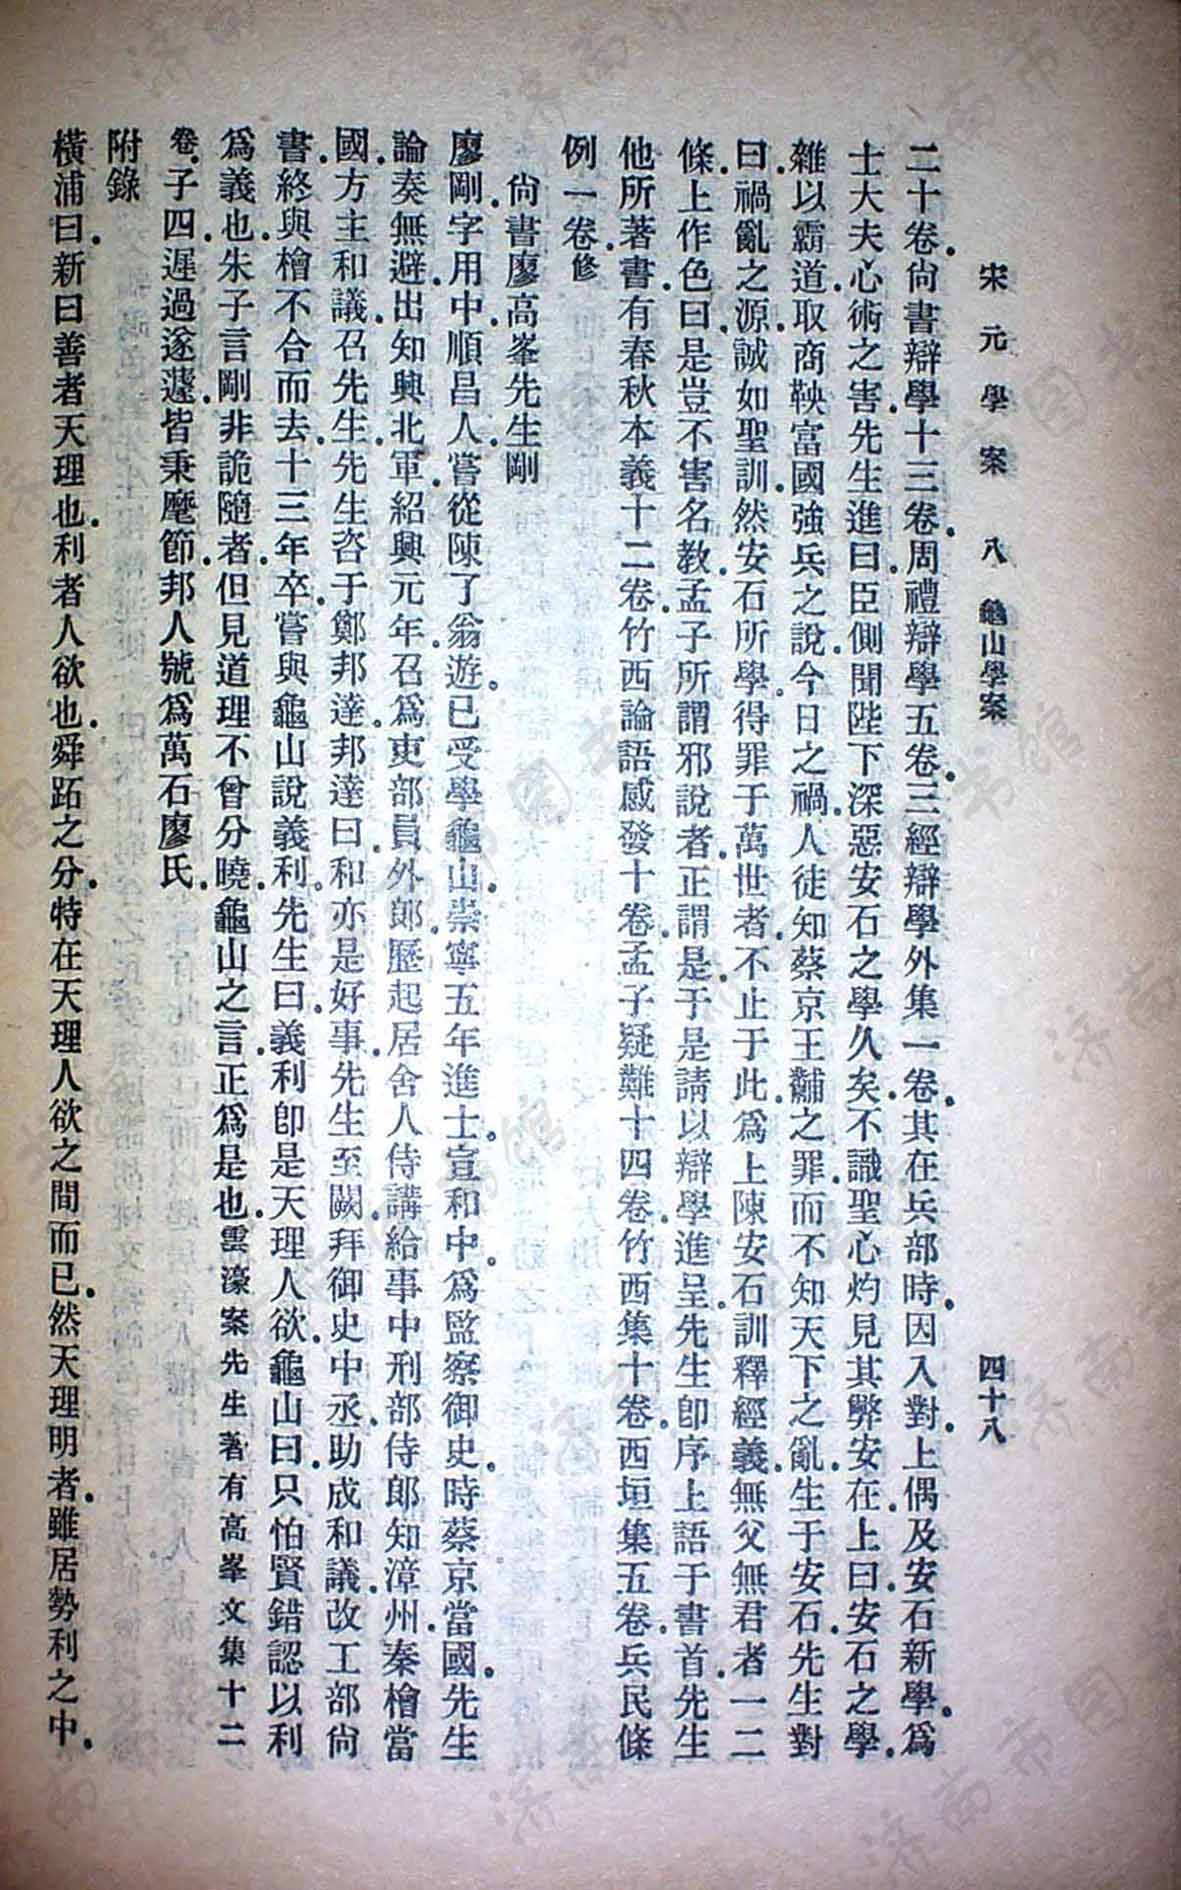 宋元學案 八 龜山學案 四十八
二十卷尙書辯學十三卷周禮辯學五卷三經辯學外集一卷其在兵部時因入對上偶及安石新學爲
士大夫心術之害先生進曰臣側聞陛下深惡安石之學久矣不識聖心灼見其弊安在上曰安石之學
雜以霸道取商鞅富國強兵之說今日之禍人徒知蔡京王黼之罪而不知天下之亂生于安石先生對
曰禍亂之源誠如聖訓然安石所學得罪于萬世者不止于此爲上陳安石訓釋經義無父無君者一二
條上作色曰是豈不害名教孟子所謂邪說者正謂是于是請以辯學進呈先生卽序上語于書首先生
他所著書有春秋本義十二卷竹西論語感發十卷孟子疑難十四卷竹西集十卷西垣集五卷兵民條
例一卷修
尙書廖高峯先生剛
廖剛字用中順昌人嘗從陳了翁遊已受學龜山崇寧五年進士宣和中爲監察御史時蔡京當國先生
論奏無避出知興北軍紹興元年召爲吏部員外郎歷起居舍人侍講給事中刑部侍郎知漳州秦檜當
國方主和議召先生先生咨于鄭邦達邦達曰和亦是好事先生至闕拜御史中丞助成和議改工部尙
書終與檜不合而去十三年卒嘗與龜山說義利先生曰義利卽是天理人欲龜山曰只怕賢錯認以利
爲義也朱子言剛非詭隨者但見道理不曾分曉龜山之言正爲是也雲濠案先生著有高峯文集十二
卷子四遲過遂蘧皆秉麾節邦人號爲萬石廖氏
附錄
橫浦曰新曰善者天理也利者人欲也舜跖之分特在天理人欲之間而已然天理明者雖居勢利之中